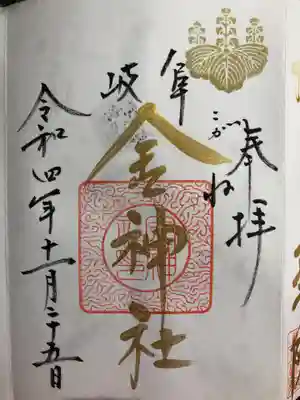 奉拝
こがね
岐阜
金神社
令和四年十一月二十五日